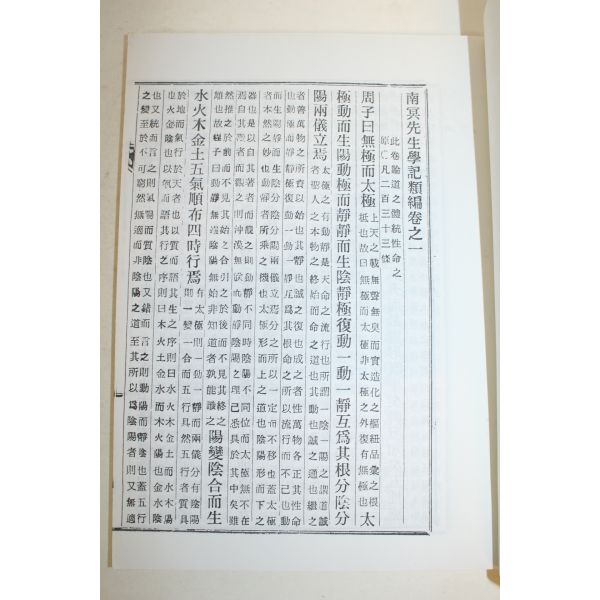 南冥先生學記類編卷之一
此卷論道之體統性命之
原〇凡二百三十三條
周子曰無極而太極
上天之載無聲無臭而實造化之樞紐品彙之根
柢也故曰無極而太極非太極之外復有無極也
太
極動而生陽動極而靜靜而生陰靜極復動一動一靜互爲其根分陰分
陽兩儀立焉
太極之有動靜是天命之流行也所謂一陰一陽之謂道誠
者聖人之本物之終始而命之道也其動也誠之通也繼之
者善萬物之所資以始也其靜也誠之復也成之者性萬物各正其性命
也動極而靜靜極復動一動一靜互爲其根命之所以流行而不已也動
而生陽靜而生陰分陰分陽兩儀立焉分之所以一定而不移也蓋太極
者本然之妙也動靜者所乘之機也太極形而上之道也陰陽形而下之
器也是以自其著者而觀之則動靜不同時陰陽不同位而太極無不在
焉自其微者而觀之則沖漠無眹而動靜陰陽之理已悉具於其中矣雖
然推之於前而不見其始之合引之於後而不見其終之
離也故程子曰動靜無端陰陽無始非知道者孰能識之
陽變陰合而生
水火木金土五氣順布四時行焉
有太極則一動一靜而兩儀分有陰陽
則一變一合而五行具然五行者質具
於地而氣行於天者也以質而語其生之序則曰水火木金土而水木陽
也火金陰也以氣而語其行之序則曰木火土金水而木火陽也金水陰
也又統而言之則氣陽而質陰也又錯而言之則動陽而靜陰也蓋五行
之變至於不可窮然無適而非陰陽之道至其所以爲陰陽者則又無適